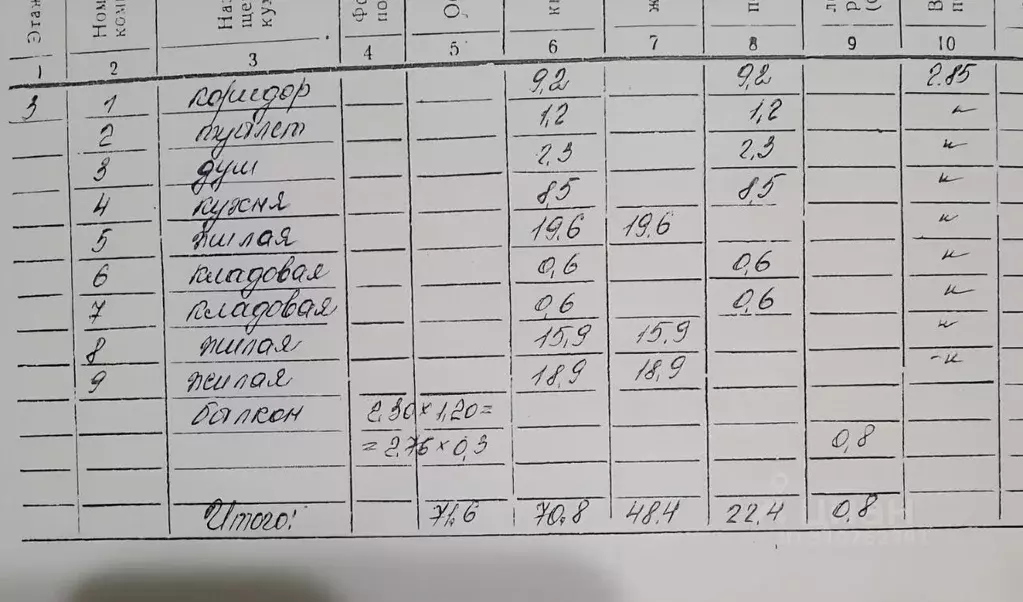 Этаж
1 2 3 4 5 6 7 8 9 10
3 1 коридор 9,2 9,2 2.85
2 туалет 1,2 1,2 "
3 душ 2,3 2,3 "
4 кухня 8,5 8,5 "
5 жилая 19,6 19,6 "
6 кладовая 0,6 0,6 "
7 кладовая 0,6 0,6 "
8 жилая 15,9 15,9 "
9 жилая 18,9 18,9 -"
балкон 2,30 × 1,20 =
= 2,76 × 0,3 0,8
Итого: 71,6 70,8 48.4 22,4 0,8